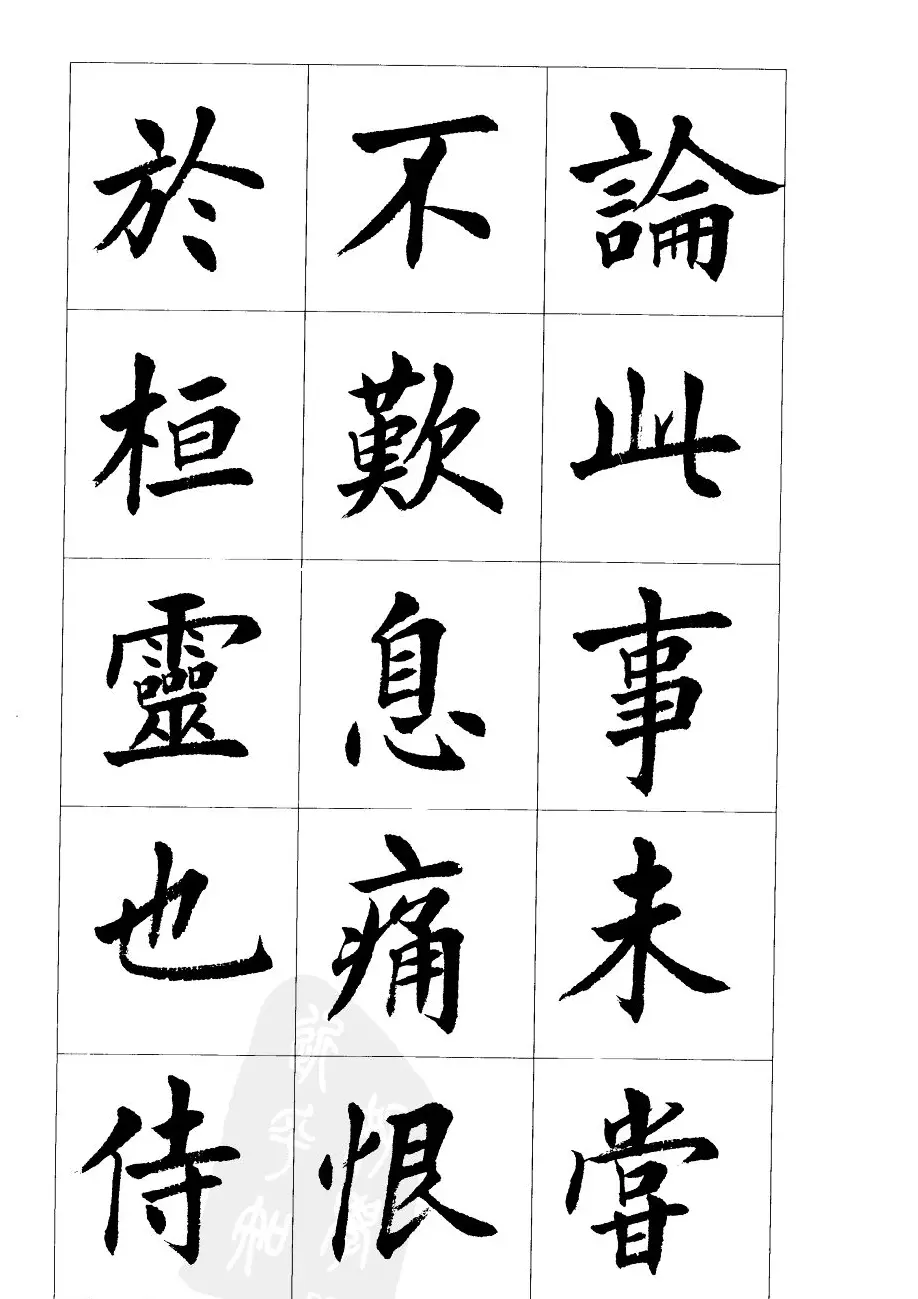 論此事未嘗
不歎息痛恨
於桓靈也侍